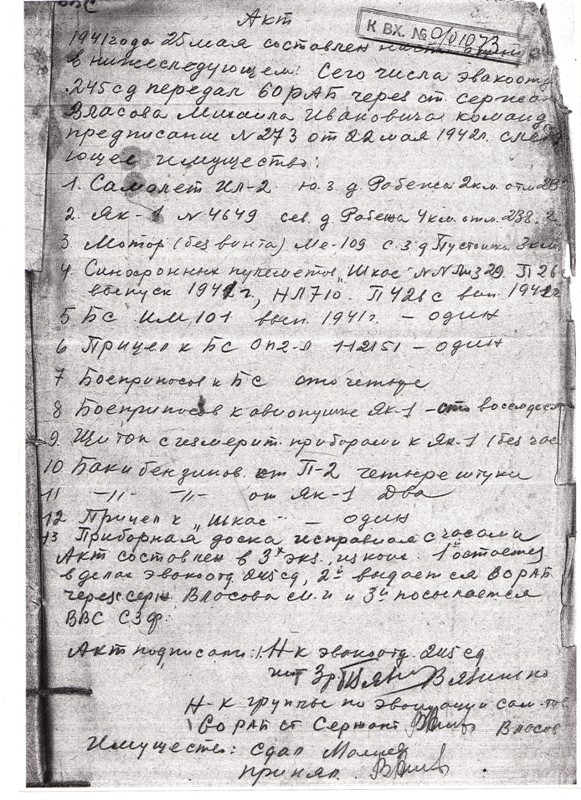 Акт
К ВХ. № 0/01073
1941 года 25 мая составлен
в нижеследующем: Сего числа эвакоотд
245 сд передал 60 РАБ через ст. сержан
Власова Михаила Ивановича команд
предписание N 273 от 22 мая 1942 г. след
ющее имущество:
1. Самолет ИЛ-2 ю.з. д. Робежа 2 км. отм.
2. Як-1 N 4649 сев. д. Робежа 4 км. отм. 238.2
3. Мотор (без винта) Ме-109 с.з. д. Пустошка 3 км
4. Синхронных пулеметов "Шкас" NN П 26
выпуск 1941 г, НЛ 710. П 426 с вып. 1941 г
5 БС ИМ 101 вып. 1941 г. – один
6 Прицел к БС ОП2-Л 112151 – один
7 Боеприпасов к БС сто четыре
8 Боеприпасов к авиопушке Як-1 – сто восемдесят
9. Щиток с измерит. приборами к Як-1 (без час
10 Баки бензинов. от П-2 четыре штуки
11 -"- -"- от Як-1 Два
12 Прицел к "Шкас" – один
13 Приборная доска исправная с часами
Акт составлен в 3х экз., из коих 1й остается
в делах эвакоотд 245 сд, 2й выдается 60 РАБ
через серж Власова М.И и 3й посылается
ВВС СЗФ.
Акт подписали: 1. Н-к эвакоотд. 245 сд
Н-к группы по эвакуации сам-тов
60 РАБ ст Сержант Власов
Имущество: сдал
принял